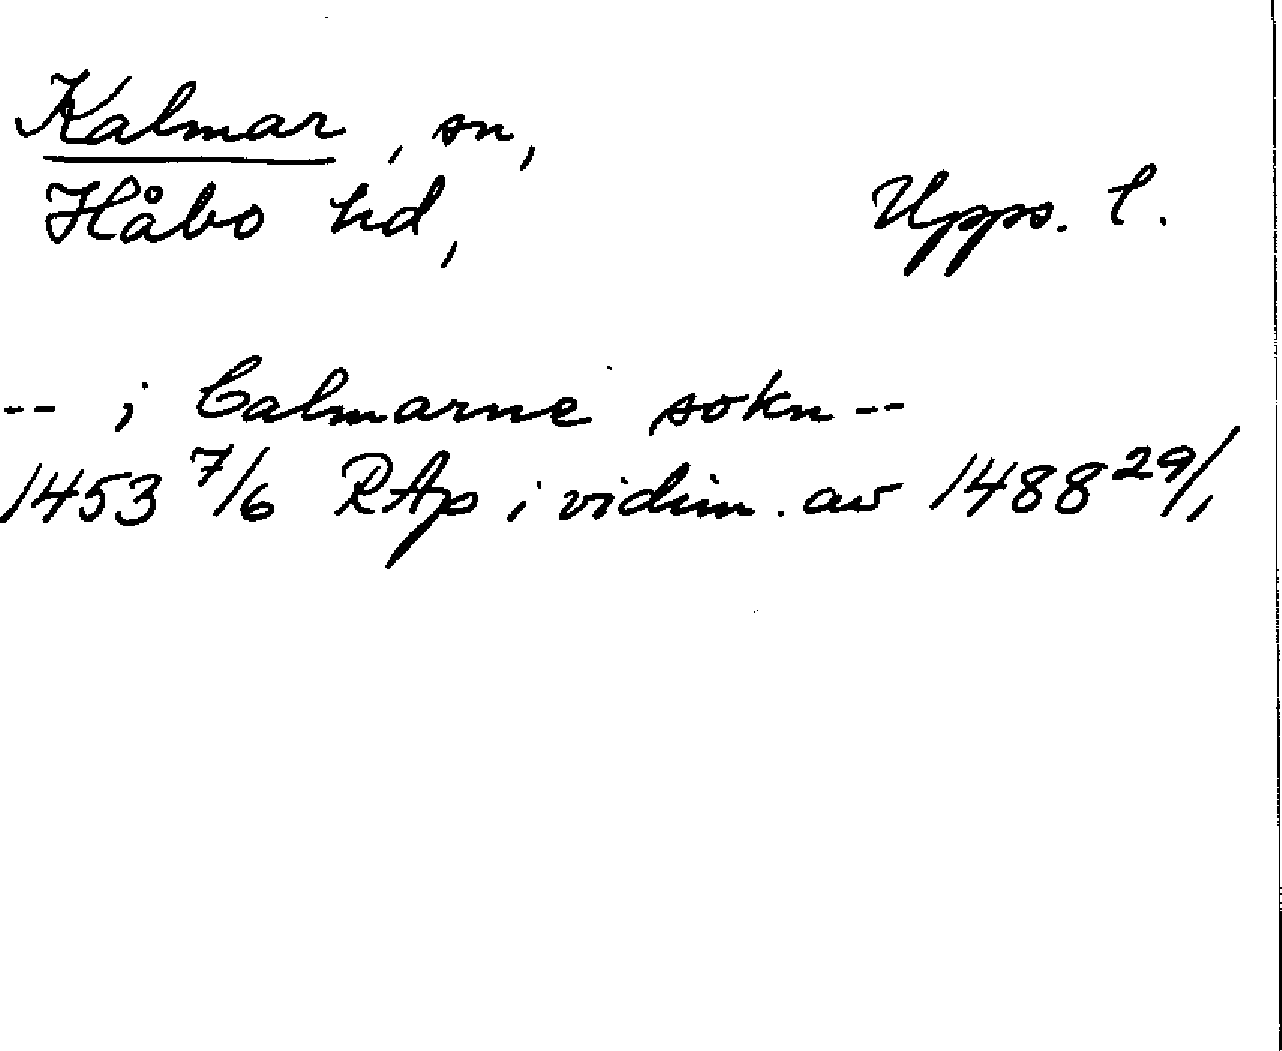 Kalmar, sn,
Håbo hd, Upps. l.
-- i Calmarne sokn --
1453 7/6 RAp i vidim. av 1488 29/1